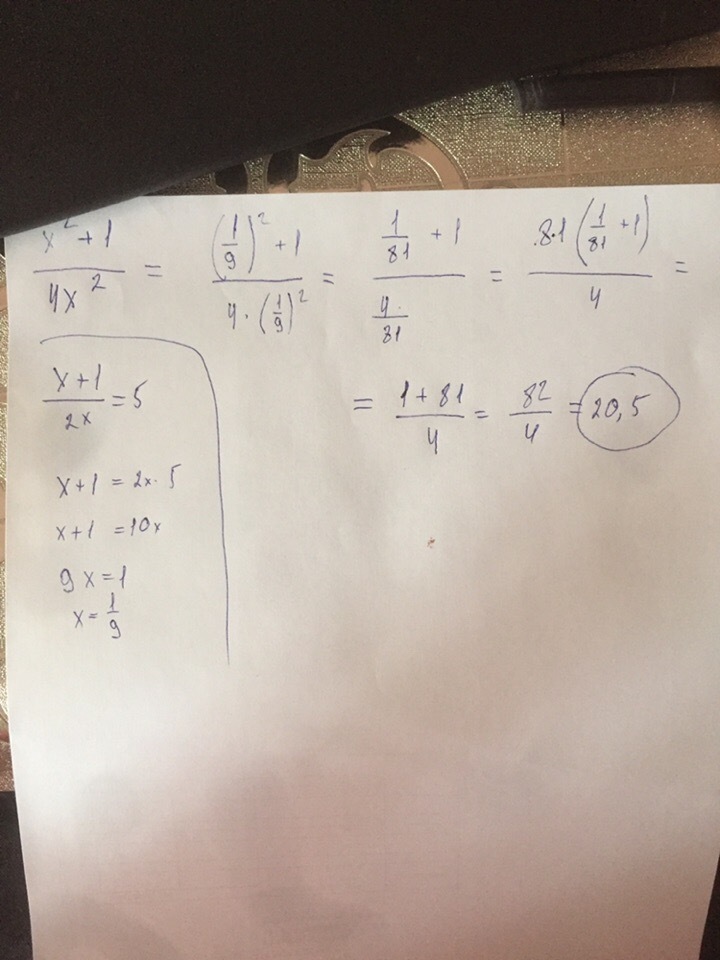 (x² + 1)/(4x²) = ((1/9)² + 1)/(4·(1/9)²) = (1/81 + 1)/(4·/81) = 8·1(1/81 + 1)/4 =
= (1 + 81)/4 = 82/4 = 20,5
(x + 1)/(2x) = 5
x + 1 = 2x · 5
x + 1 = 10x
9x = 1
x = 1/9